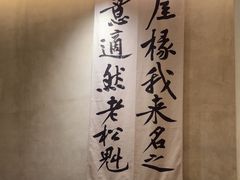 屋椽我来名之
意適然老松魁